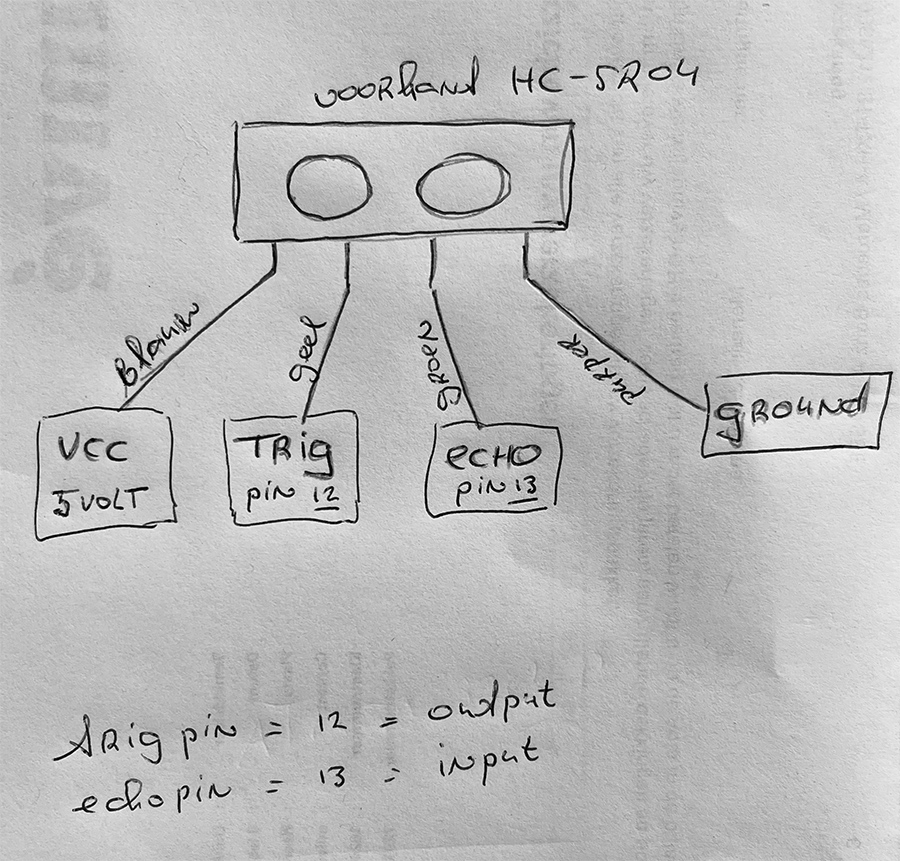 voorkand HC-SR04
Blauw
geel
groen
purper
VCC
5 VOLT
TRig
pin 12
ECHO
pin 13
GROUNd
TRig pin = 12 = output
echo pin = 13 = input